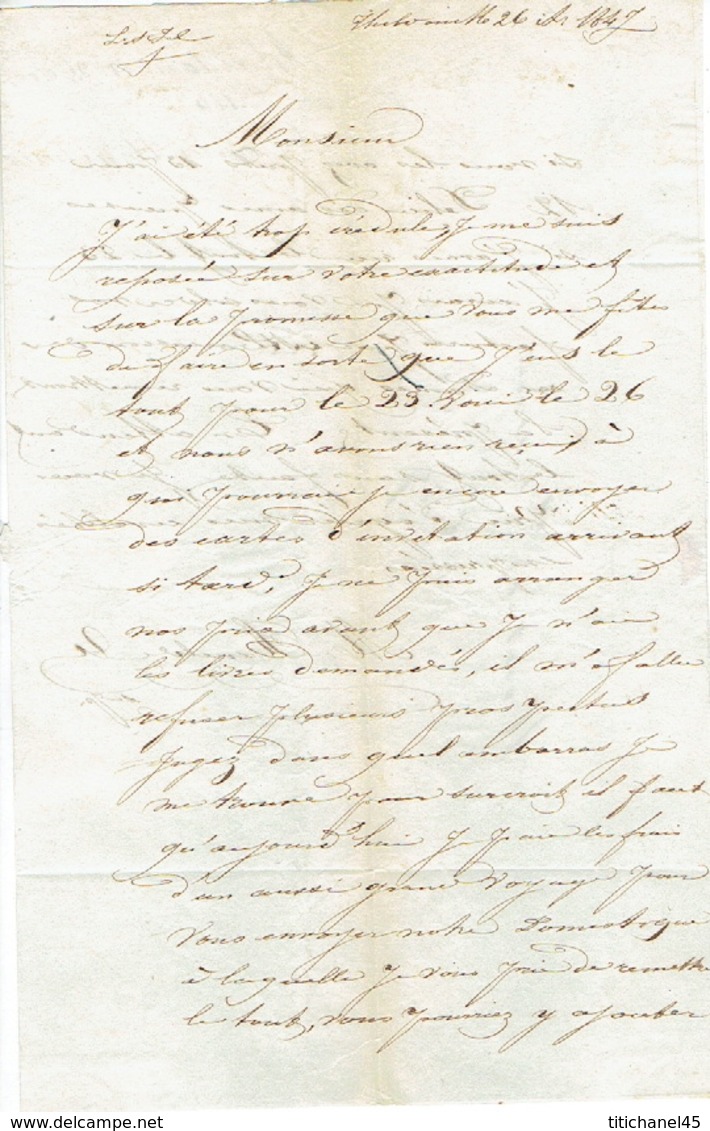 26 1847
Monsieur
J'ai été trop crédule, Je me suis
reposée sur votre exactitude et
sur la promesse que vous me fites
de faire en sorte que J'eus le
tout pour le 23. voici le 26
et nous n'avons rien reçu, à
qui pourrai je encore envoyer
des cartes d'invitation arrivant
si tard, Je ne puis arranger
nos prix avant que J n'aie
les livres demandés, il m'a fallu
refuser plusieurs prospectus
Jugez dans quel embarras Je
me trouve pour surcroit il faut
qu'aujourd'hui Je paie les frais
d'un aussi grand voyage pour
vous envoyer notre Domestique
à laquelle Je vous prie de remettre
le tout, vous pourriez y ajouter
titichanel45